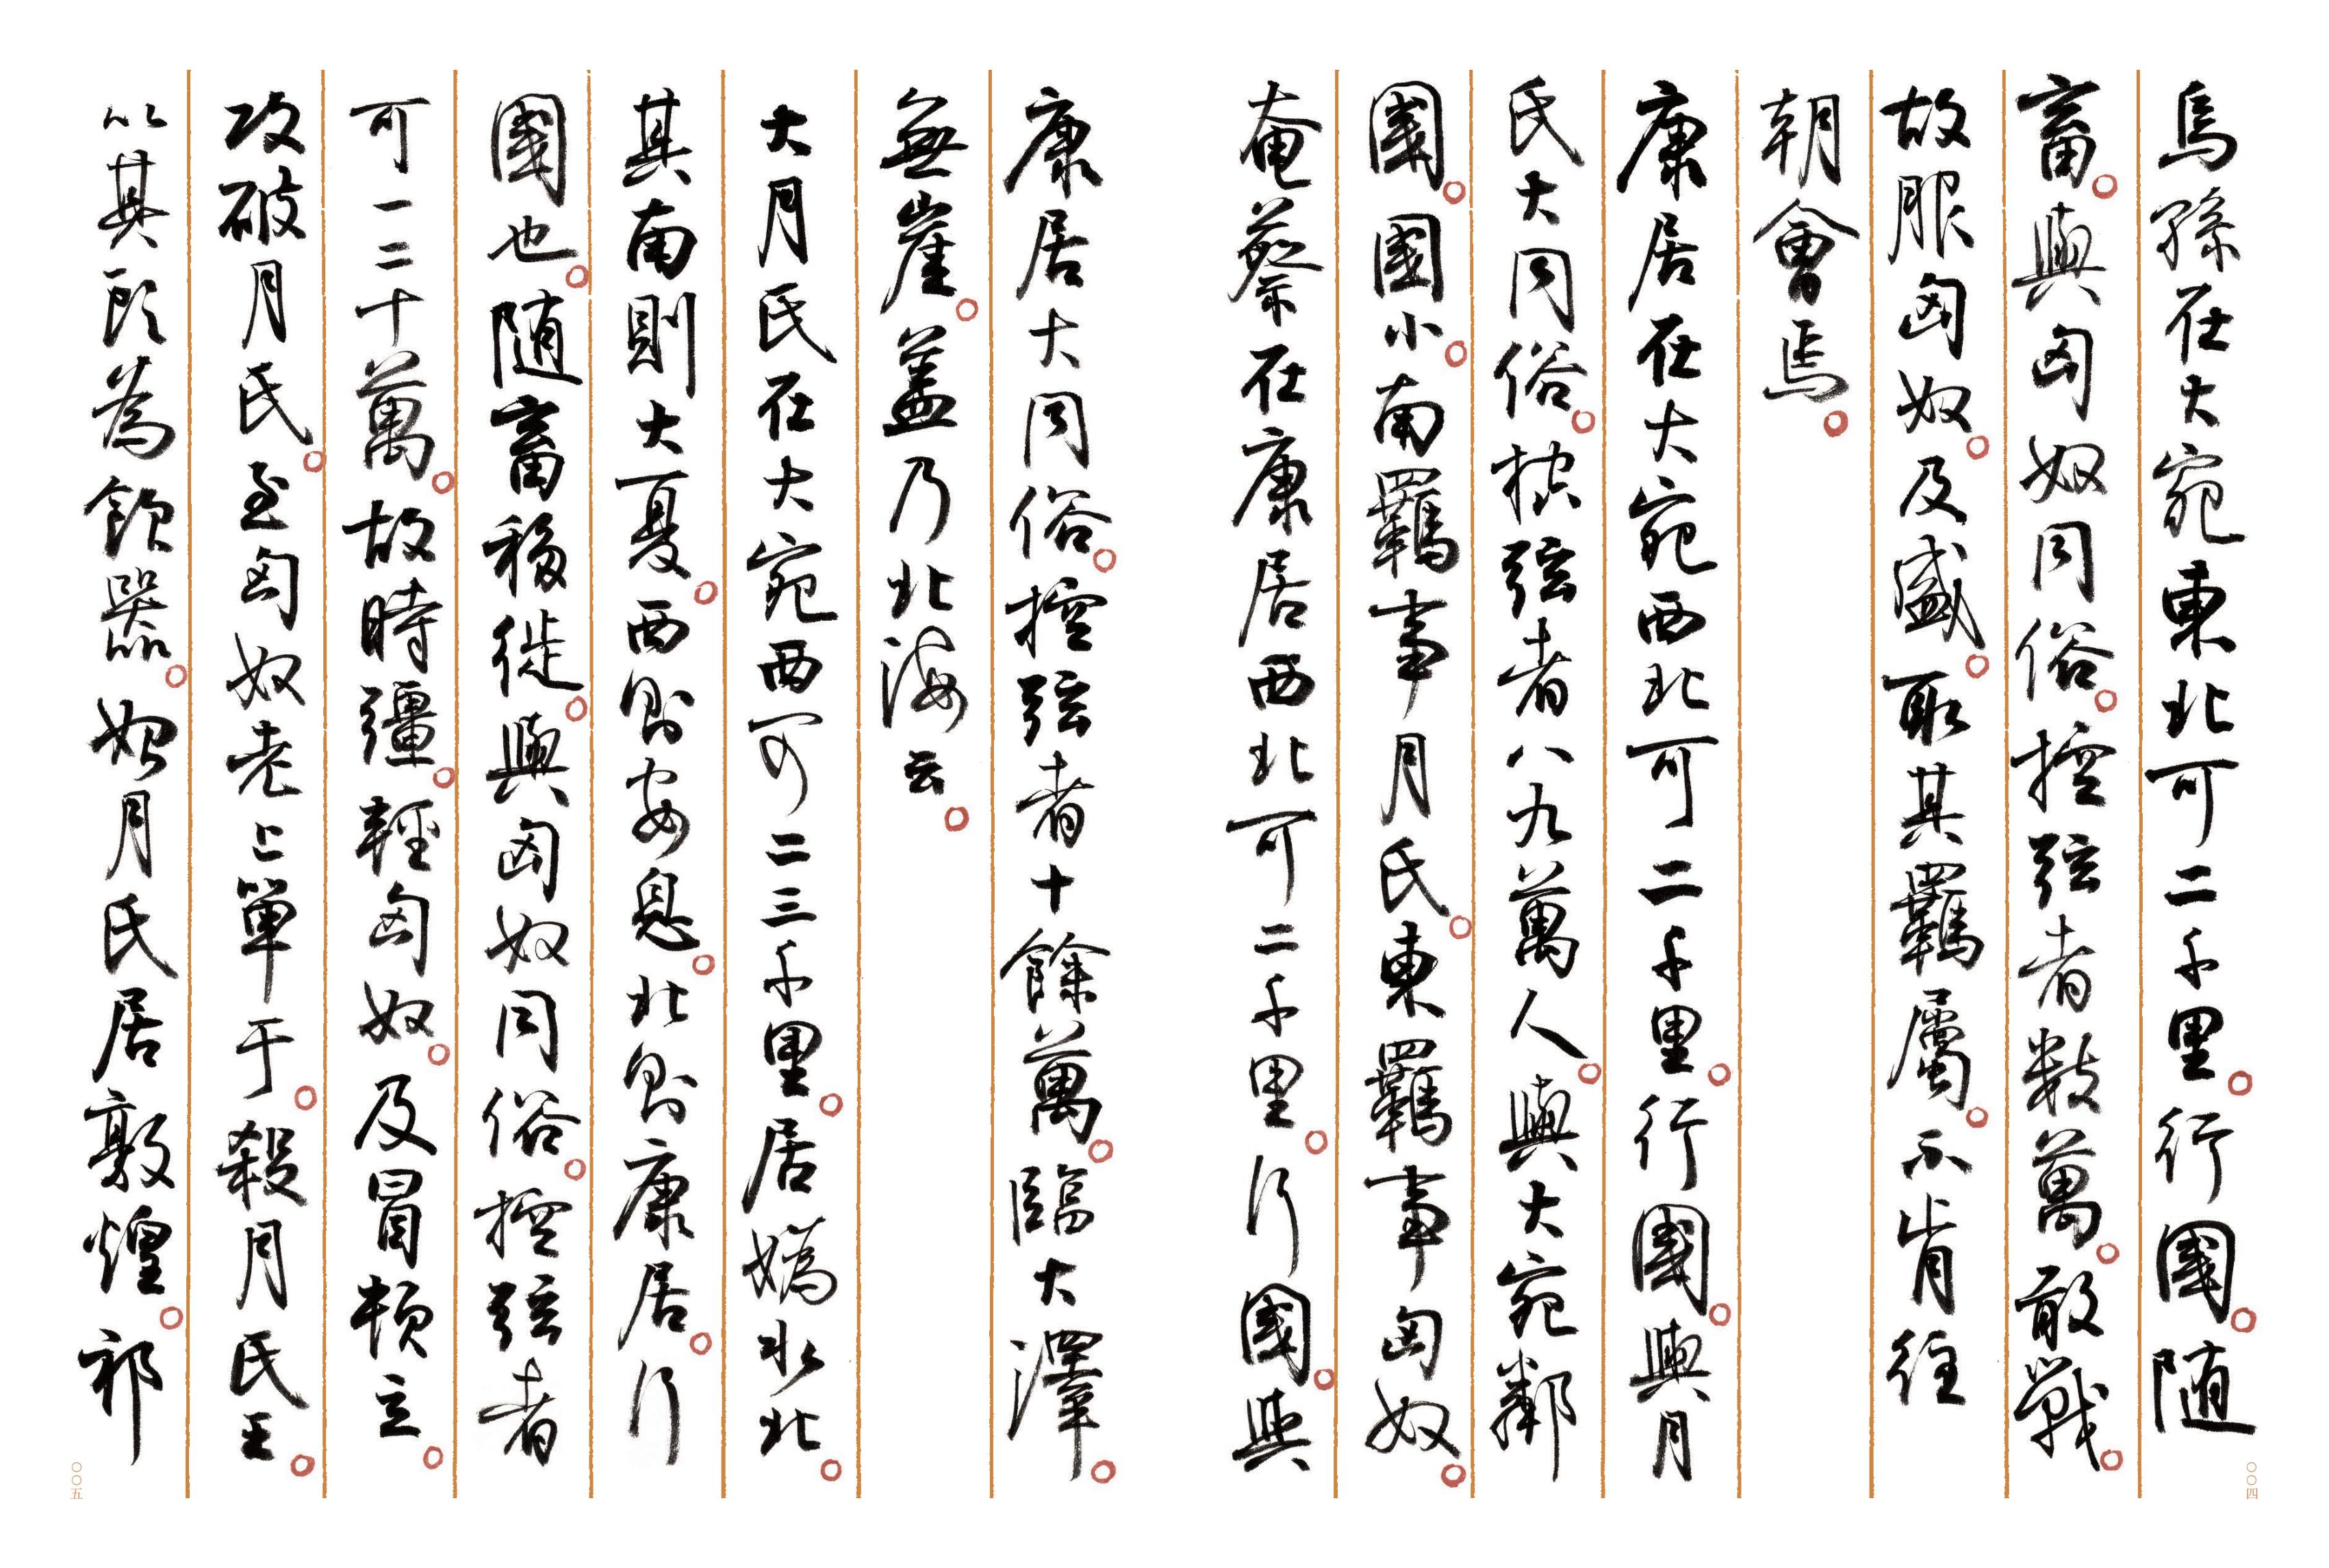 烏孫在大宛東北可二千里。行國。随
畜。與匈奴同俗。控弦者數萬。敢戰。
故服匈奴。及盛。取其羈屬。不肯往
朝會焉。
康居在大宛西北可二千里。行國。與月
氏大同俗。控弦者八九萬人。與大宛鄰
國。國小。南羈事月氏。東羈事匈奴。
奄蔡在康居西北可二千里。行國。與
康居大同俗。控弦者十餘萬。臨大澤。
無崖。蓋乃北海云。
大月氏在大宛西可二三千里。居嬀水北。
其南則大夏。西則安息。北則康居。行
國也。随畜移徙。與匈奴同俗。控弦者
可一二十萬。故時彊。輕匈奴。及冒頓立。
攻破月氏。至匈奴老上單于。殺月氏王。
以其頭為飲器。始月氏居敦煌。祁
〇〇四
〇〇五